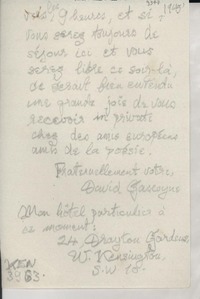 9 heures, et si
vous serez toujours de
séjour ici et vous
serez libre ce soir-là,
ce serait bien entendu
une grande joie de vous
recevoir en privato
chez des amis européens
amis de la poésie.
Fraternellement votre,
David Gascoyne
Mon hôtel particulier à
ce moment:
24 Drayton Gardens,
W. Kensington,
S.W. 10.